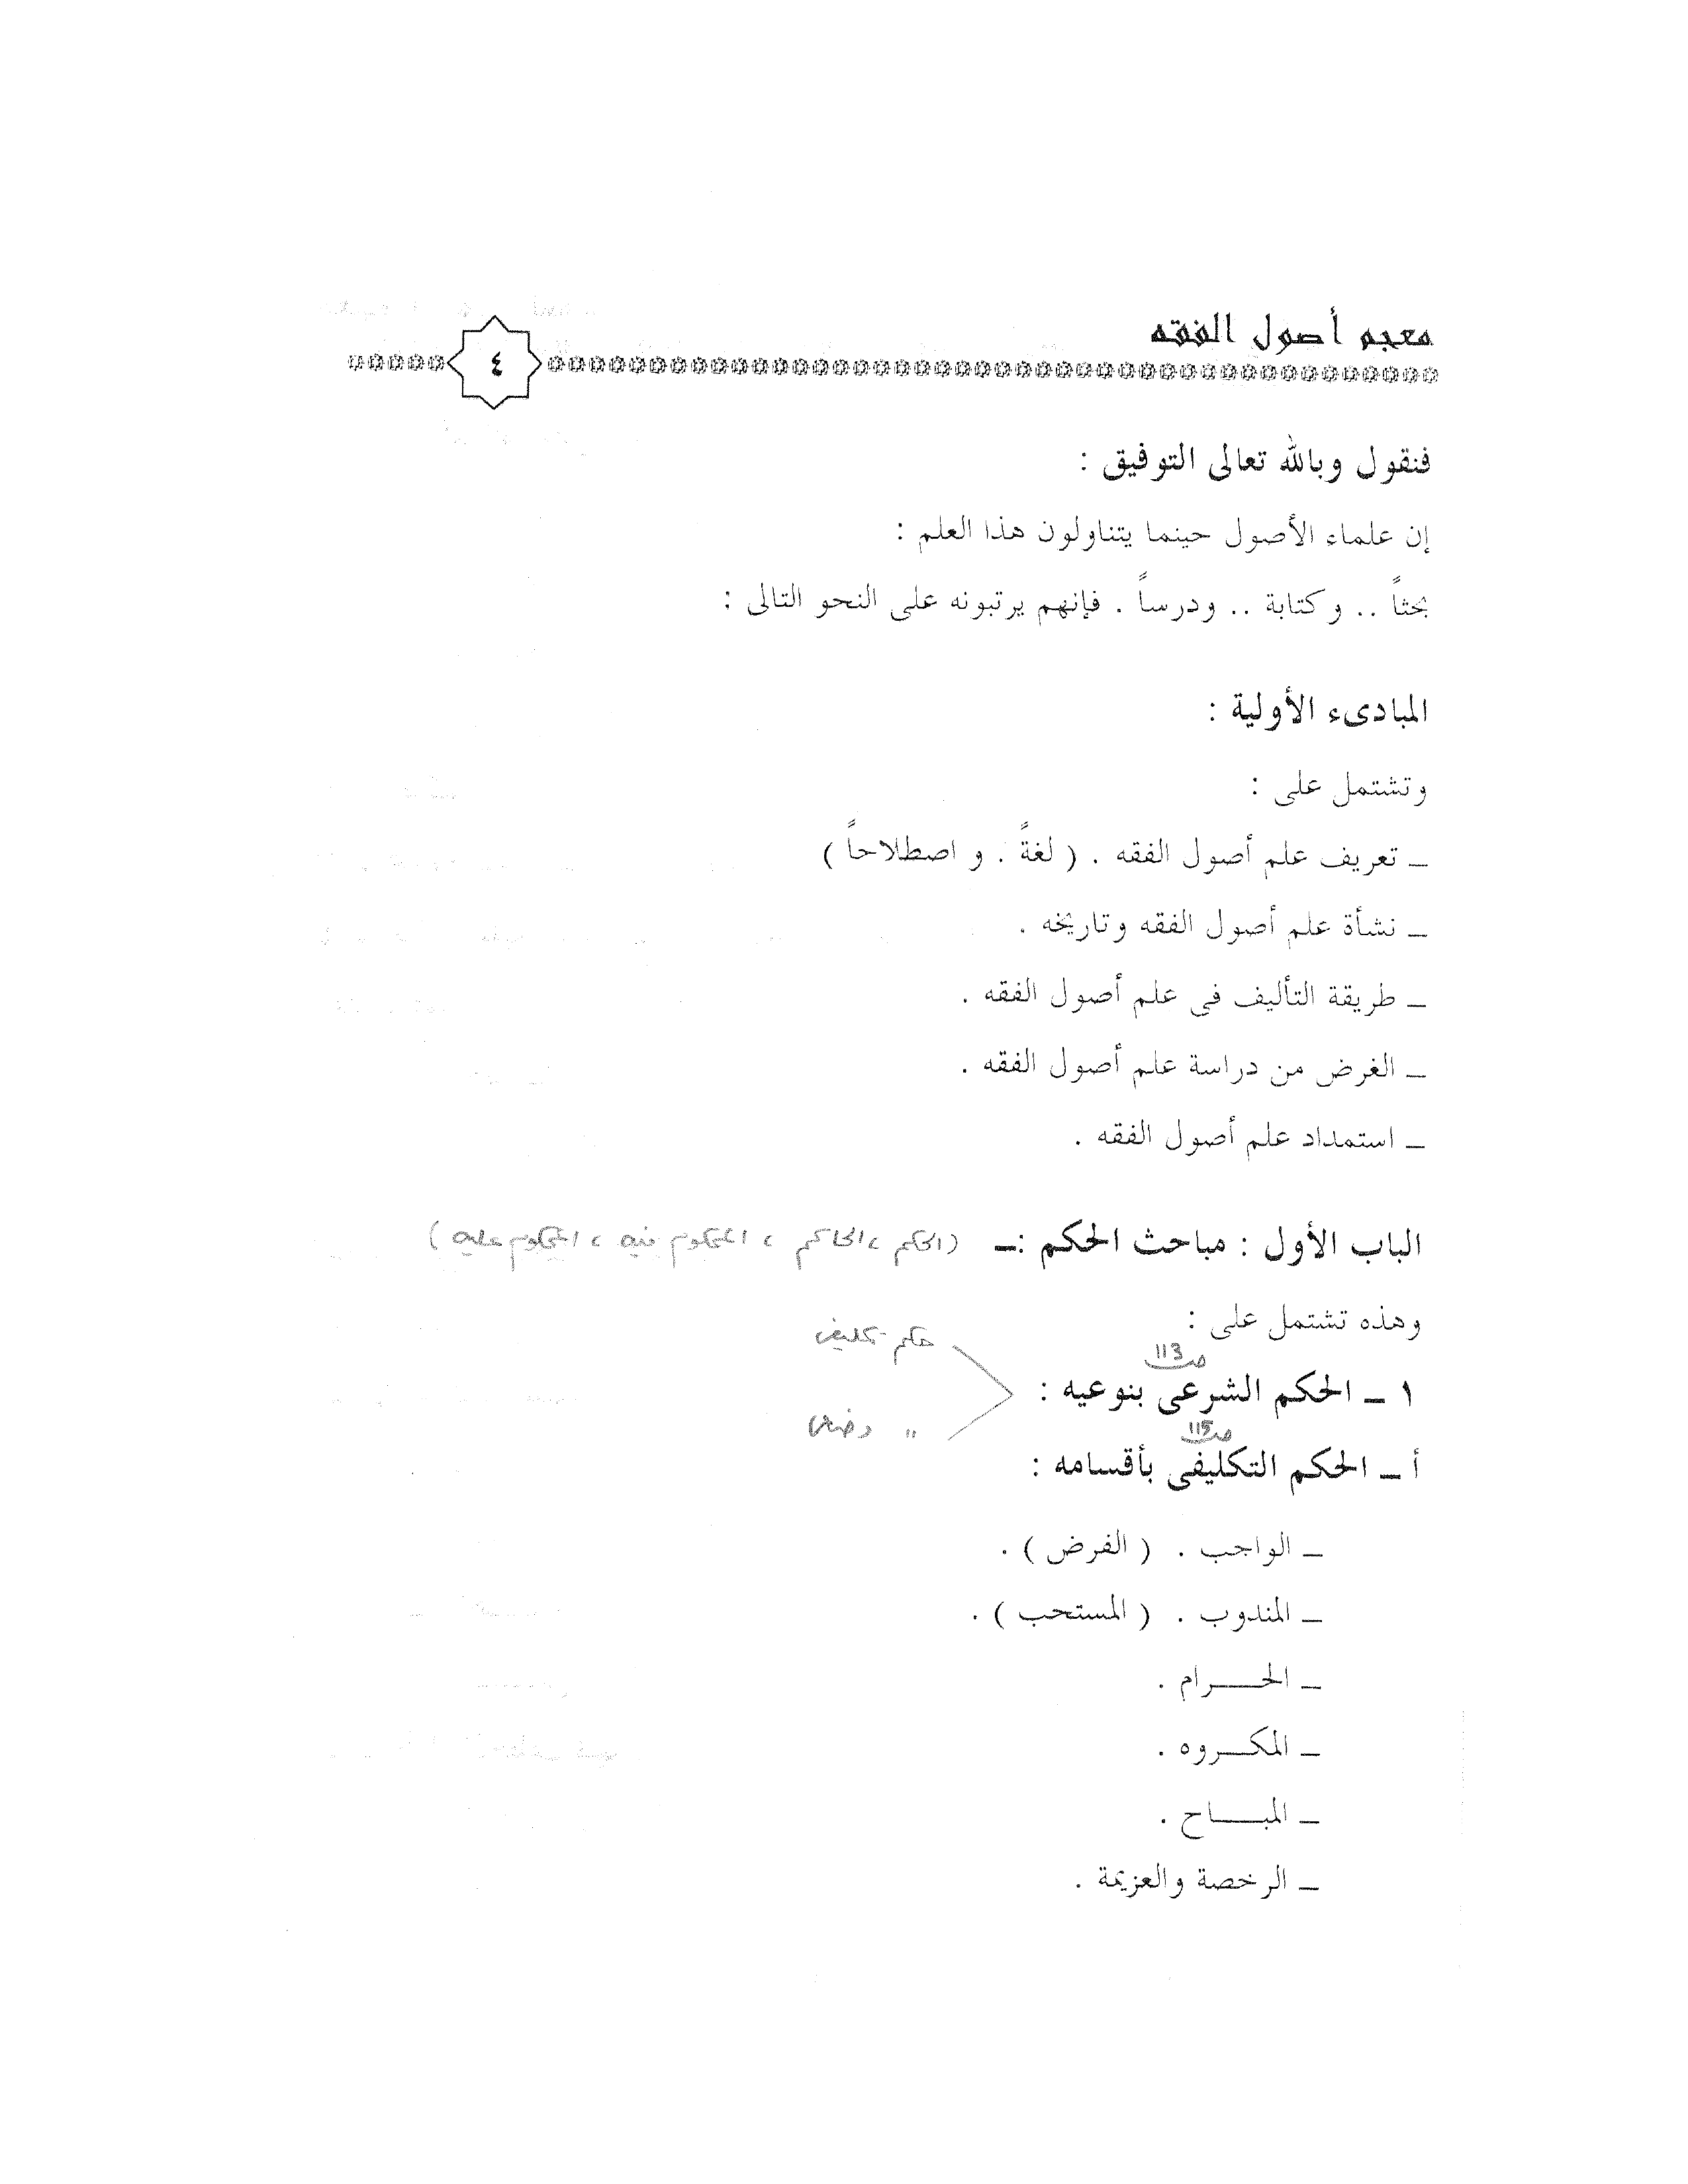 معجم أصول الفقه
٤
فنقول وبالله تعالى التوفيق :
إن علماء الأصول حينما يتناولون هذا العلم :
بحثاً .. وكتابة .. ودرساً . فإنهم يرتبونه على النحو التالى :
المبادىء الأولية :
وتشتمل على :
ـ تعريف علم أصول الفقه . ( لغةً . و اصطلاحاً )
ـ نشأة علم أصول الفقه وتاريخه .
ـ طريقة التأليف فى علم أصول الفقه .
ـ الغرض من دراسة علم أصول الفقه .
ـ استمداد علم أصول الفقه .
الباب الأول : مباحث الحكم :ـ (الحكم، الحاكم، المحكوم فيه، المحكوم عليه)
وهذه تشتمل على :
حكم تكليفى
ص 113
١ ـ الحكم الشرعى بنوعيه :
" وضعى
ص 115
أ ـ الحكم التكليفى بأقسامه :
ـ الواجب . ( الفرض ) .
ـ المندوب . ( المستحب ) .
ـ الحـــرام .
ـ المكـــروه .
ـ المبـــاح .
ـ الرخصة والعزيمة .